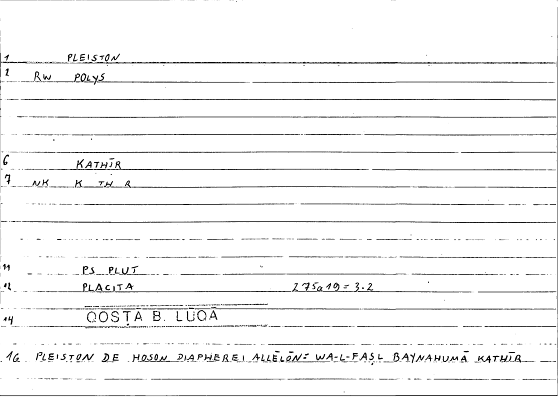 1 PLEISTON
2 RW POLYS
6 KATHĪR
7 NK K TH R
11 PS PLUT
12 PLACITA 275a19 = 3.2
14 QOSṬĀ B. LŪQĀ
16 PLEISTON DE HOSON DIAPHEREI ALLĒLŌN = WA-L-FAṢL BAYNAHUMĀ KATHĪR